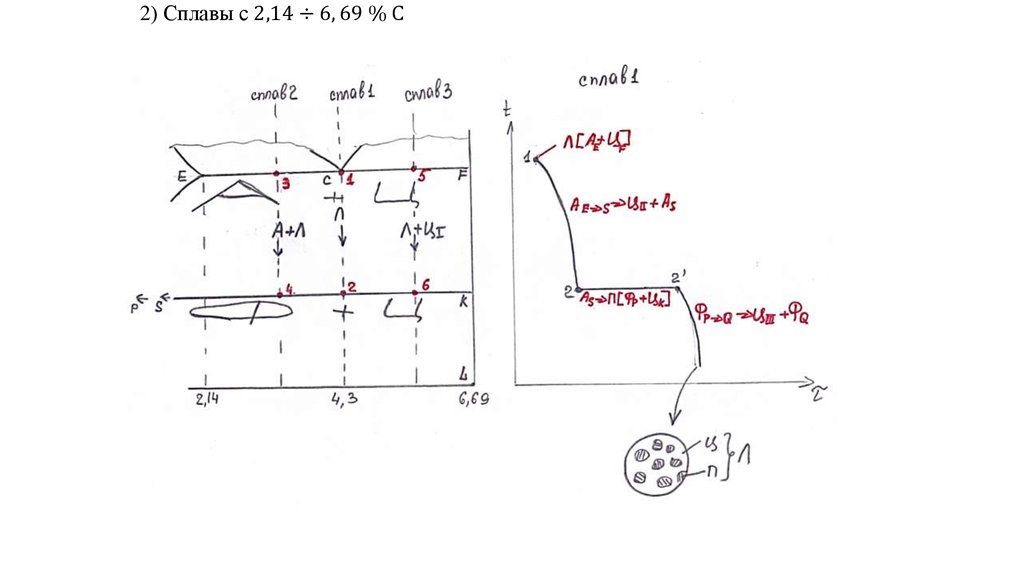 2) Сплавы с 2,14 ÷ 6, 69 % С
сплав2 сплав1 сплав3
E 3 C 1 5 F
А+Л Л Л+ЦI
P S 4 2 6 K
L
2,14 4,3 6,69
сплав1
t
1 Л[АE+ЦF]
АE→S→ЦII+АS
2 2'
АS→П[ФP+ЦK]
ФP→Q→ЦIII+ФQ
τ
Ц
П
Л